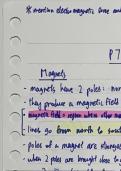 * mention electromagnetic force and
P7
Magnets
- magnets have 2 poles: nor
- they produce a magnetic field
- magnetic field = region where other mag
- lines go from north to south
- poles of a magnet are stronges
- when 2 poles are brought close to